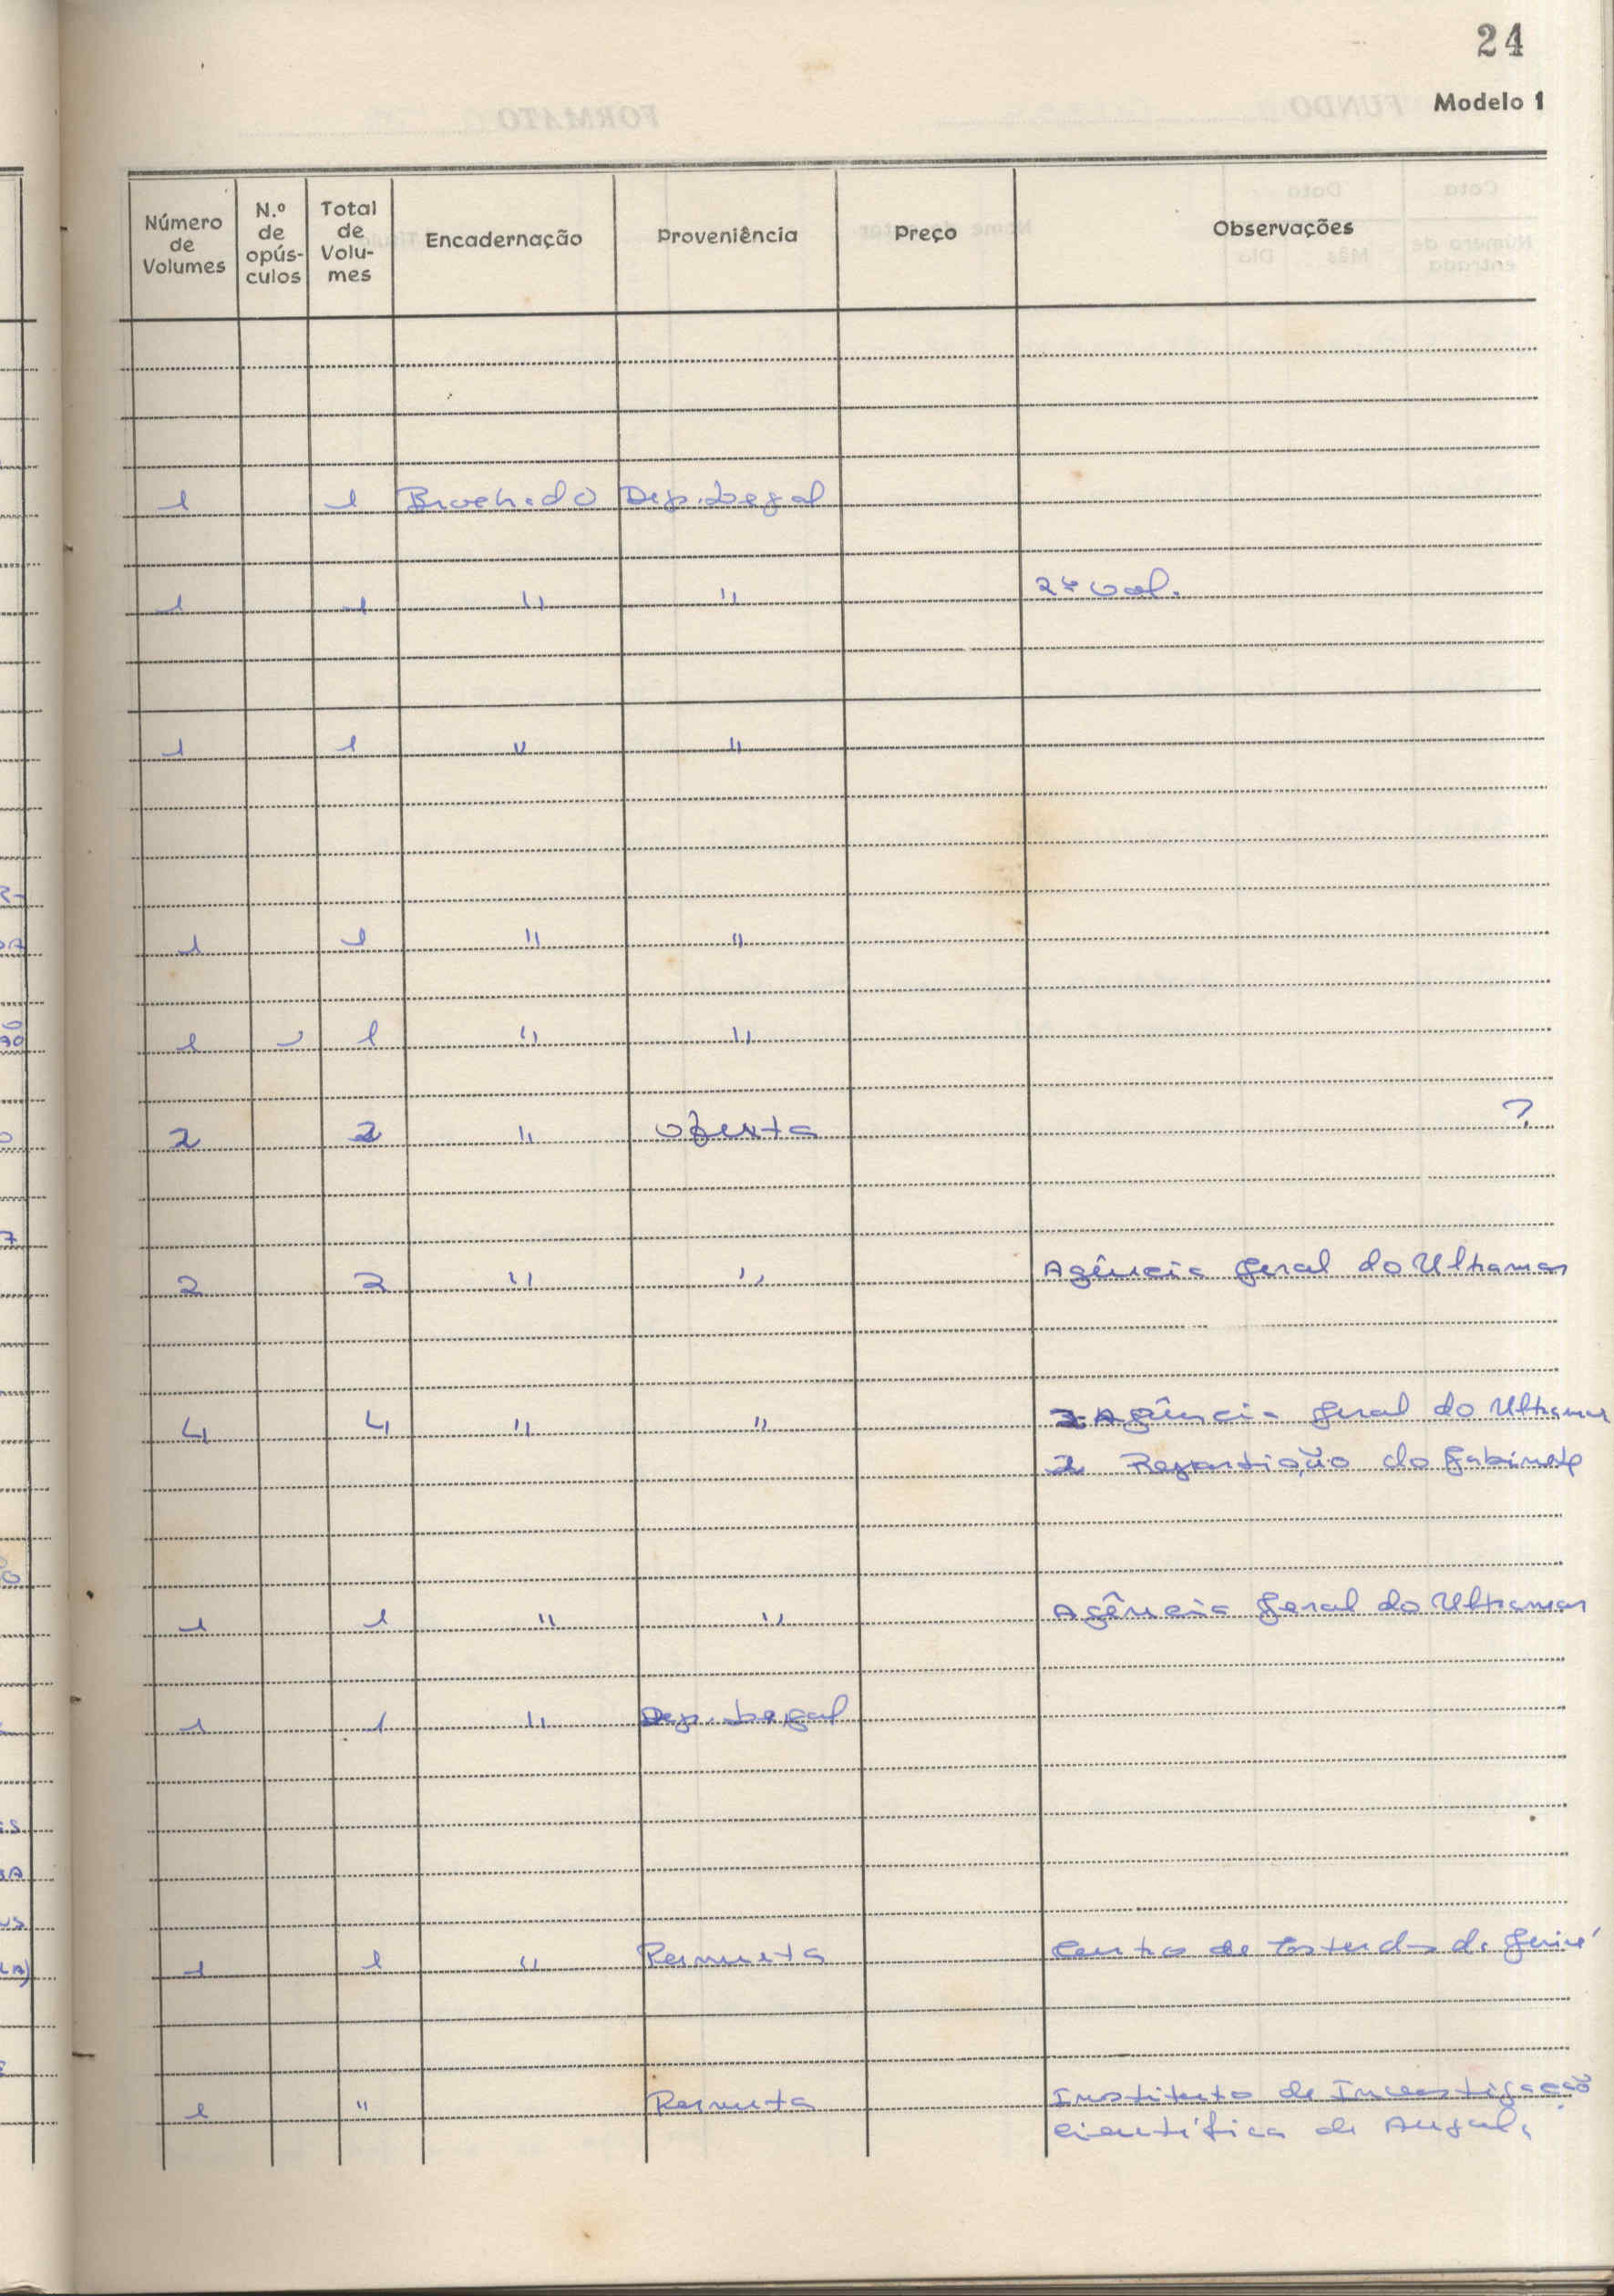 24
Modelo 1
Número de Volumes N.º de opús-culos Total de Volu-mes Encadernação Proveniência Preço Observações
1 1 Brochado Dep. Legal
1 1 " " 2º vol.
1 1 " "
1 1 " "
1 1 " "
2 2 " Oferta ?
2 2 " " Agência Geral do Ultramar
4 4 " " 2 Agência Geral do Ultramar
2 Repartição do Gabinete
1 1 " " Agência Geral do Ultramar
1 1 " Dep. Legal
1 1 " Permuta Centro de Estudos da Guiné
1 " Permuta Instituto de Investigação
Científica de Angola